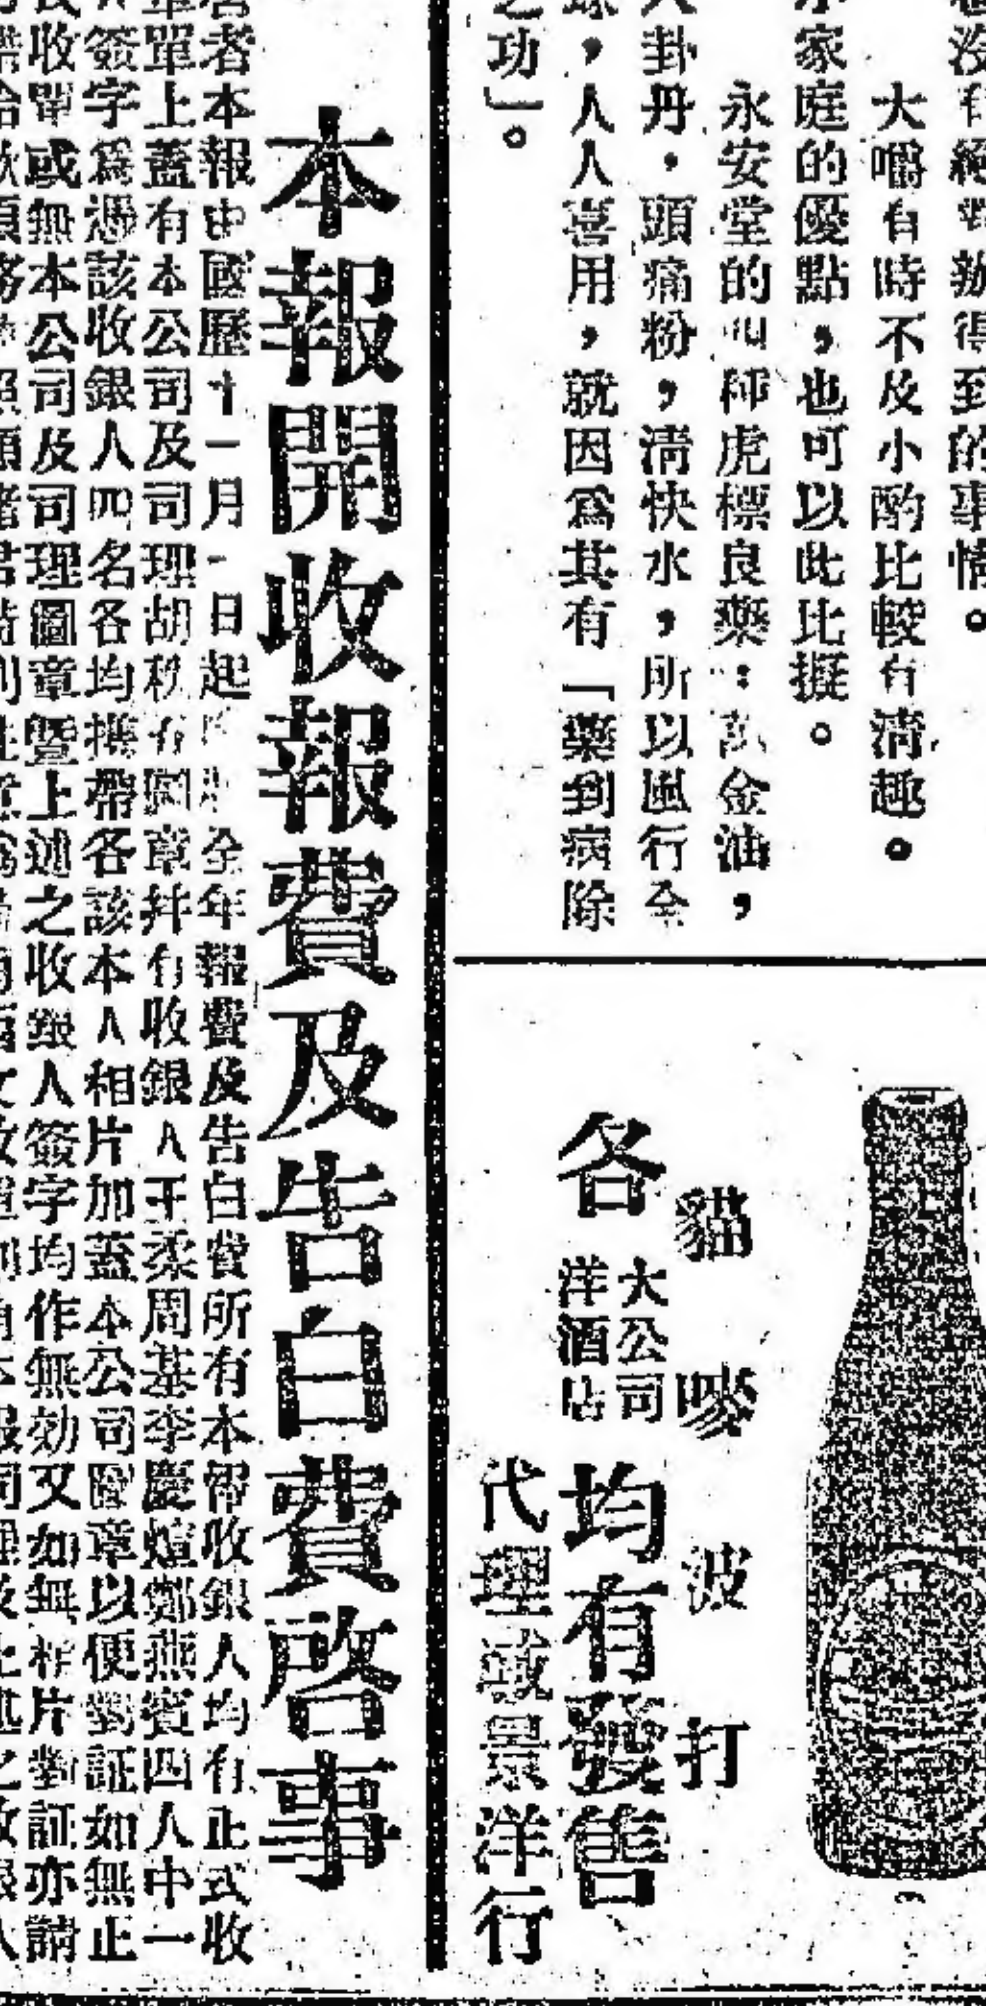 沒有絕對辦得到的事情。
大嚼有時不及小酌比較有清趣。
家庭的優點，也可以此比擬。
永安堂的四種虎標良藥：萬金油，
八卦丹，頭痛粉，清快水，所以風行全
球，人人喜用，就因爲其有「藥到病除
之功」。
貓嘜波打
各大公司洋酒店均有發售
代理 景洋行
本報開收報費及告白費啓事
者本報由國歷十一月一日起 全年報費及告白費所有本 收銀人均有正式收
單上蓋有本公司及司理胡 有圖章幷有收銀人王柔周基李慶煊鄭燕賓四人中一
簽字爲憑該收銀人四名各均攜帶各該本人相片加蓋本公司圖章以便對証如無正
收單或無本公司及司理圖章曁上述之收銀人簽字均作無効又如無相片對証亦請